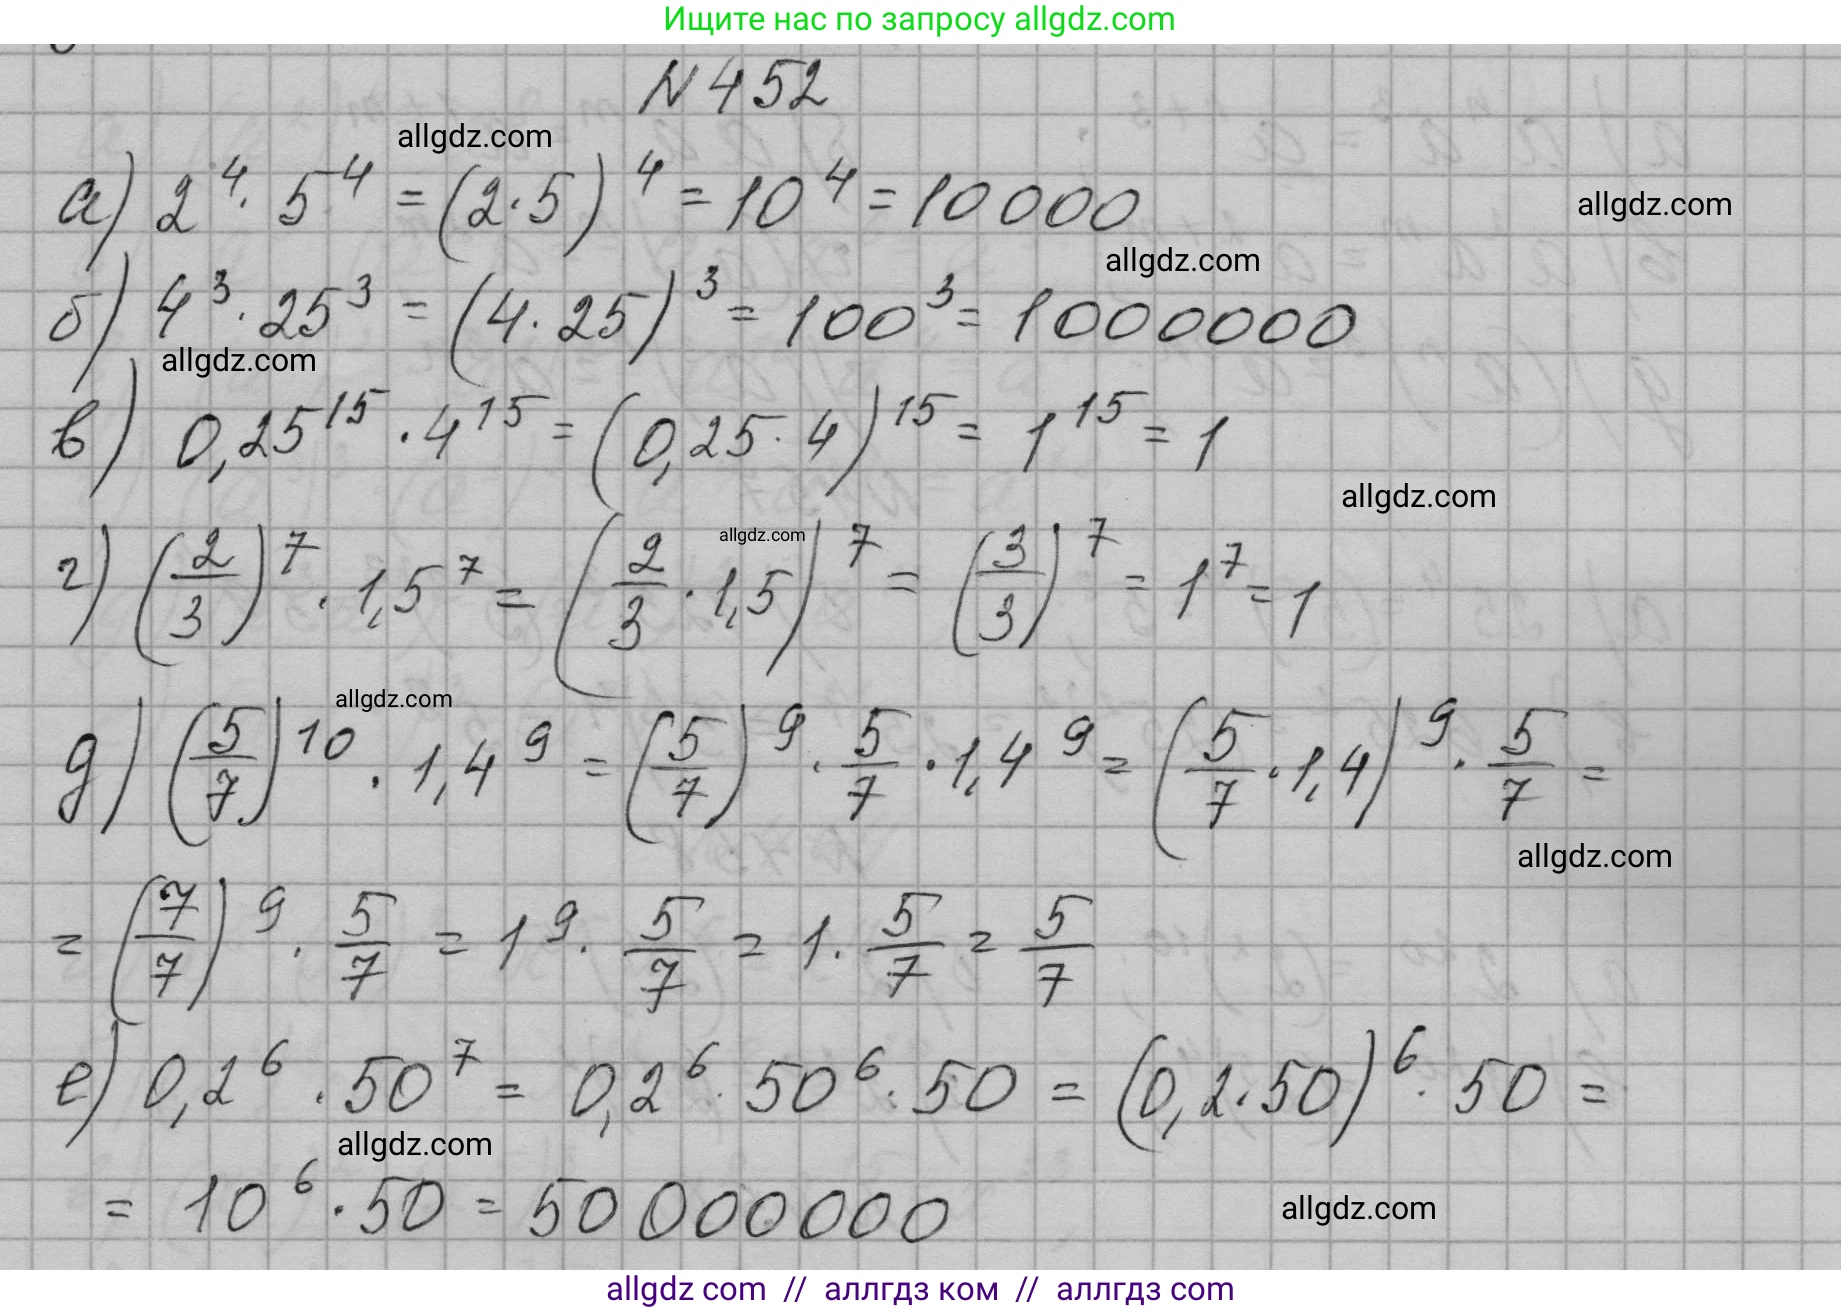 Ищите нас по запросу allgdz.com
N 452
allgdz.com
а) 2⁴ · 5⁴ = (2·5)⁴ = 10⁴ = 10000
allgdz.com
allgdz.com
б) 4³ · 25³ = (4 · 25)³ = 100³ = 1000000
allgdz.com
в) 0,25¹⁵ · 4¹⁵ = (0,25 · 4)¹⁵ = 1¹⁵ = 1
allgdz.com
allgdz.com
г) (2/3)⁷ · 1,5⁷ = (2/3 · 1,5)⁷ = (3/3)⁷ = 1⁷ = 1
allgdz.com
д) (5/7)¹⁰ · 1,4⁹ = (5/7)⁹ · 5/7 · 1,4⁹ = (5/7 · 1,4)⁹ · 5/7 =
allgdz.com
= (7/7)⁹ · 5/7 = 1⁹ · 5/7 = 1 · 5/7 = 5/7
е) 0,2⁶ · 50⁷ = 0,2⁶ · 50⁶ · 50 = (0,2 · 50)⁶ · 50 =
allgdz.com
= 10⁶ · 50 = 50 000000
allgdz.com
allgdz com // аллгдз ком // аллгдз com